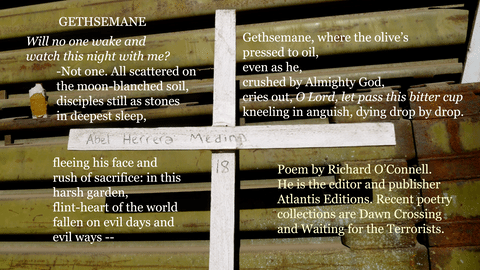 GETHSEMANE
Will no one wake and
watch this night with me?
-Not one. All scattered on
the moon-blanched soil,
disciples still as stones
in deepest sleep,
fleeing his face and
rush of sacrifice: in this
harsh garden,
flint-heart of the world
fallen on evil days and
evil ways --
Gethsemane, where the olive's
pressed to oil,
even as he,
crushed by Almighty God,
cries out, O Lord, let pass this bitter cup
kneeling in anguish, dying drop by drop.
Abel Herrera Medina
18
Poem by Richard O'Connell.
He is the editor and publisher
Atlantis Editions. Recent poetry
collections are Dawn Crossing
and Waiting for the Terrorists.